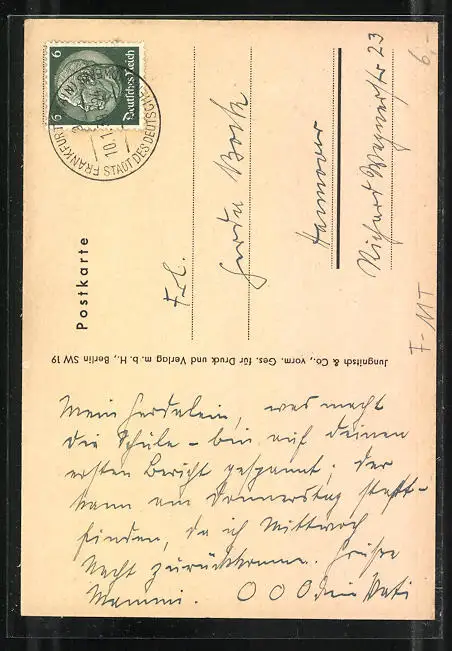 Postkarte
6
6
Deutsches Reich
FRANKFURT
STADT DES DEUTSCHEN
10.1
Frl.
Gerda Bock
Hannover
Richard Wagnerstr 23
6,-
F-MT
Jungnitsch & Co., vorm. Ges. für Druck und Verlag m. b. H., Berlin SW 19
Mein Gerdalein, was macht
die Schule – bin auf deinen
ersten Bericht gespannt, der
kann am Donnerstag statt-
finden, da ich Mittwoch
Nacht zurückkomme. Grüsse
Mammi. O O O dein Vati